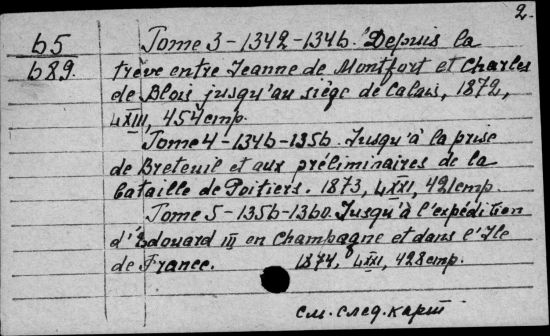 2.
65
689.
Tome 3 - 1342 - 1346. Depuis la
trève entre Jeanne de Montfort et Charles
de Blois jusqu'au siège de Calais, 1872,
LXIII, 454 cmp.
Tome 4 - 1346 - 1356. Jusqu'à la prise
de Breteuil et aux préliminaires de la
bataille de Poitiers. 1873, LXXI, 421 cmp.
Tome 5 - 1356 - 1360. Jusqu'à l'expédition
d'Edouard III en Champagne et dans l'Ile
de France. 1874, LXXI, 428 cmp.
см. след. карт